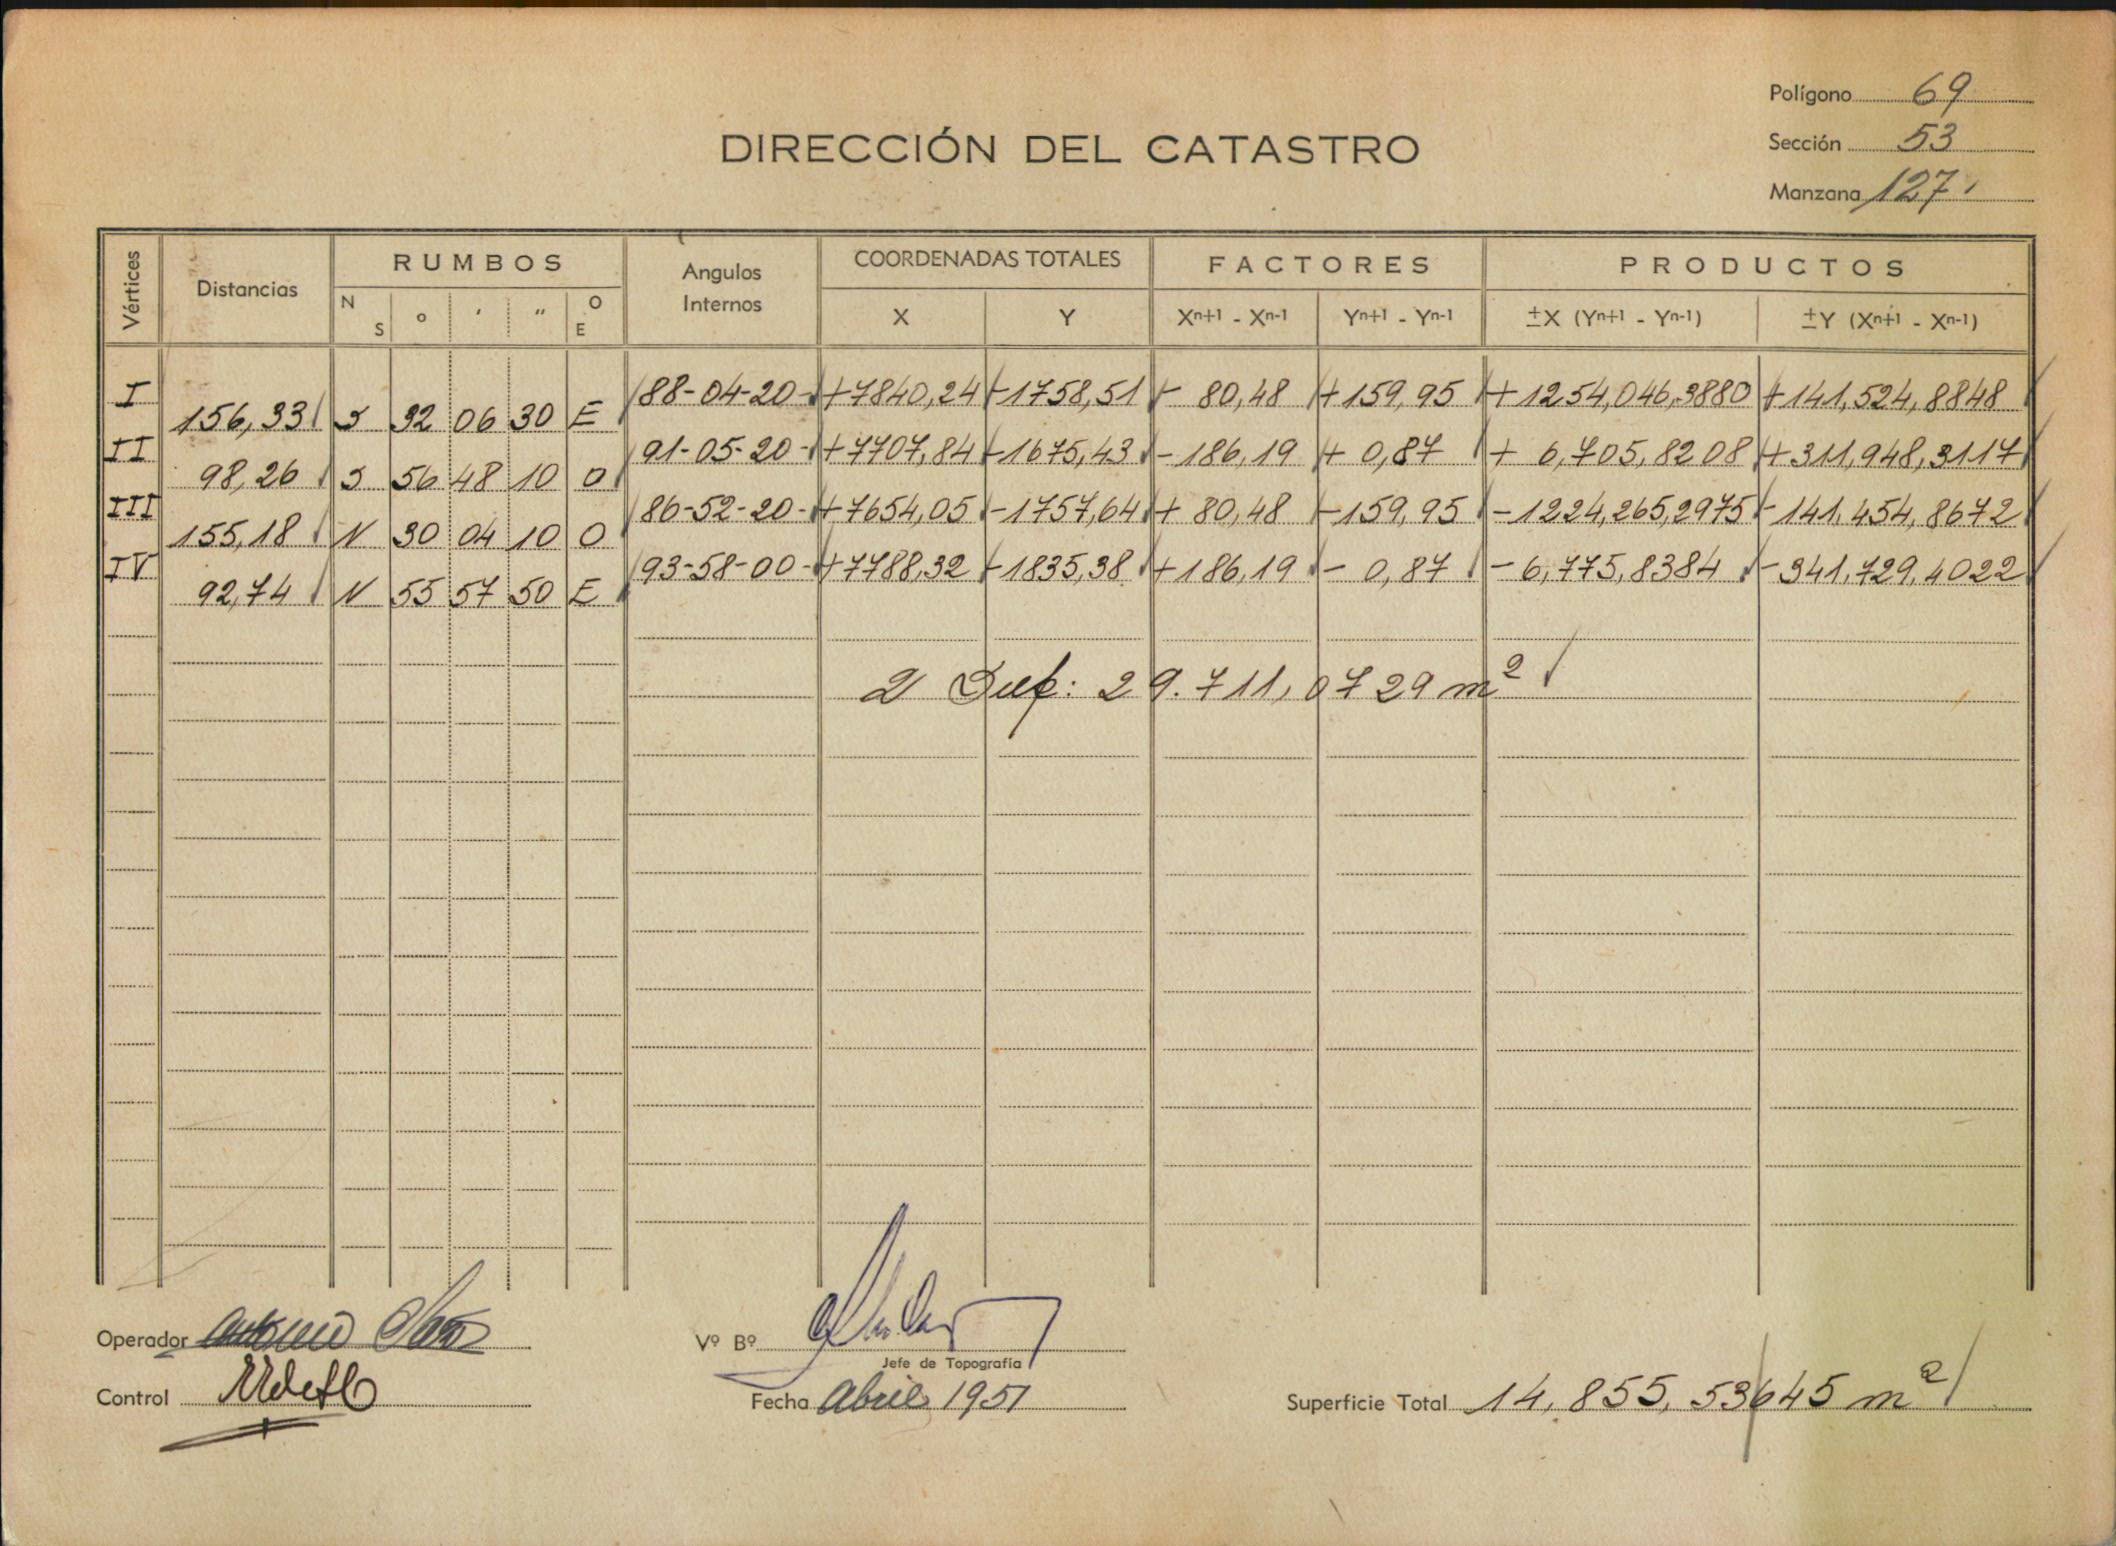 Polígono 69
DIRECCIÓN DEL CATASTRO
Sección 53
Manzana 127
Vértices Distancias RUMBOS Angulos Internos COORDENADAS TOTALES FACTORES PRODUCTOS
N S ° ' " O E X Y Xn+1 - Xn-1 Yn+1 - Yn-1 ±X (Yn+1 - Yn-1) ±Y (Xn+1 - Xn-1)
I 88-04-20 +7840,24 -1758,51 - 80,48 +159,95 +1254,046,3880 +141,524,8848
156,33 S 32 06 30 E
II 91-05-20 +7707,84 -1675,43 -186,19 + 0,87 + 6,705,8208 +311,948,3117
98,26 S 56 48 10 O
III 86-52-20 +7654,05 -1757,64 + 80,48 -159,95 -1224,265,2975 -141.454,8672
155,18 N 30 04 10 O
IV 93-58-00 +7788,32 -1835,38 +186,19 - 0,87 -6,775,8384 -341.729,4022
92,74 N 55 57 50 E
2 Sup: 29.711,0729 m²
Operador Antonio
Vº Bº
Jefe de Topografía
Control
Fecha Abril 1951
Superficie Total 14.855,53645 m²